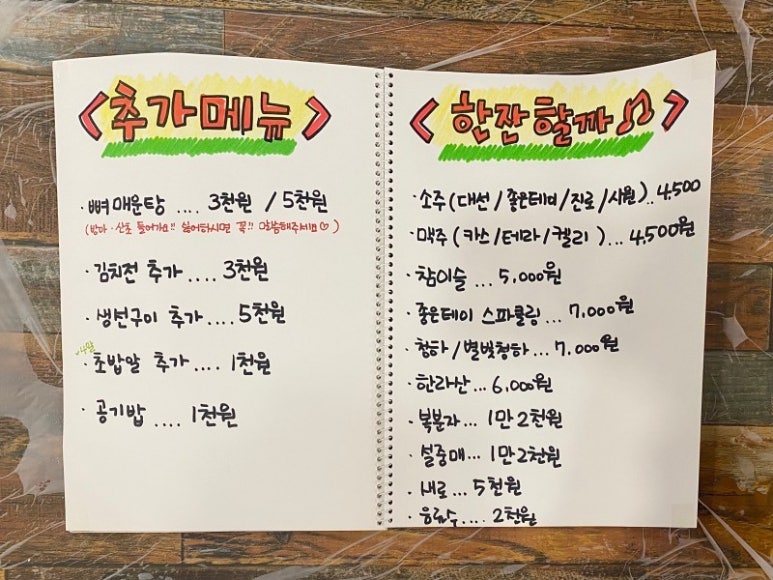 <추가메뉴>
· 뼈매운탕 .... 3천원 / 5천원
(방아·산초 들어가요!! 싫어하시면 꼭!! 말씀해주세요♡)
· 김치전 추가 .... 3천원
· 생선구이 추가 .... 5천원
· 초밥알 추가 .... 1천원
· 공기밥 .... 1천원
<한잔할까♫>
· 소주 (대선/좋은데이/진로/시원)..4,500
· 맥주 (카스/테라/켈리)...4,500원
· 참이슬 ... 5,000원
· 좋은데이 스파클링 ... 7,000원
· 청하/별빛청하 ... 7,000원
· 한라산 ... 6,000원
· 복분자 ... 1만2천원
· 설중매 ... 1만2천원
· 새로 ... 5천원
· 음료수 .... 2천원